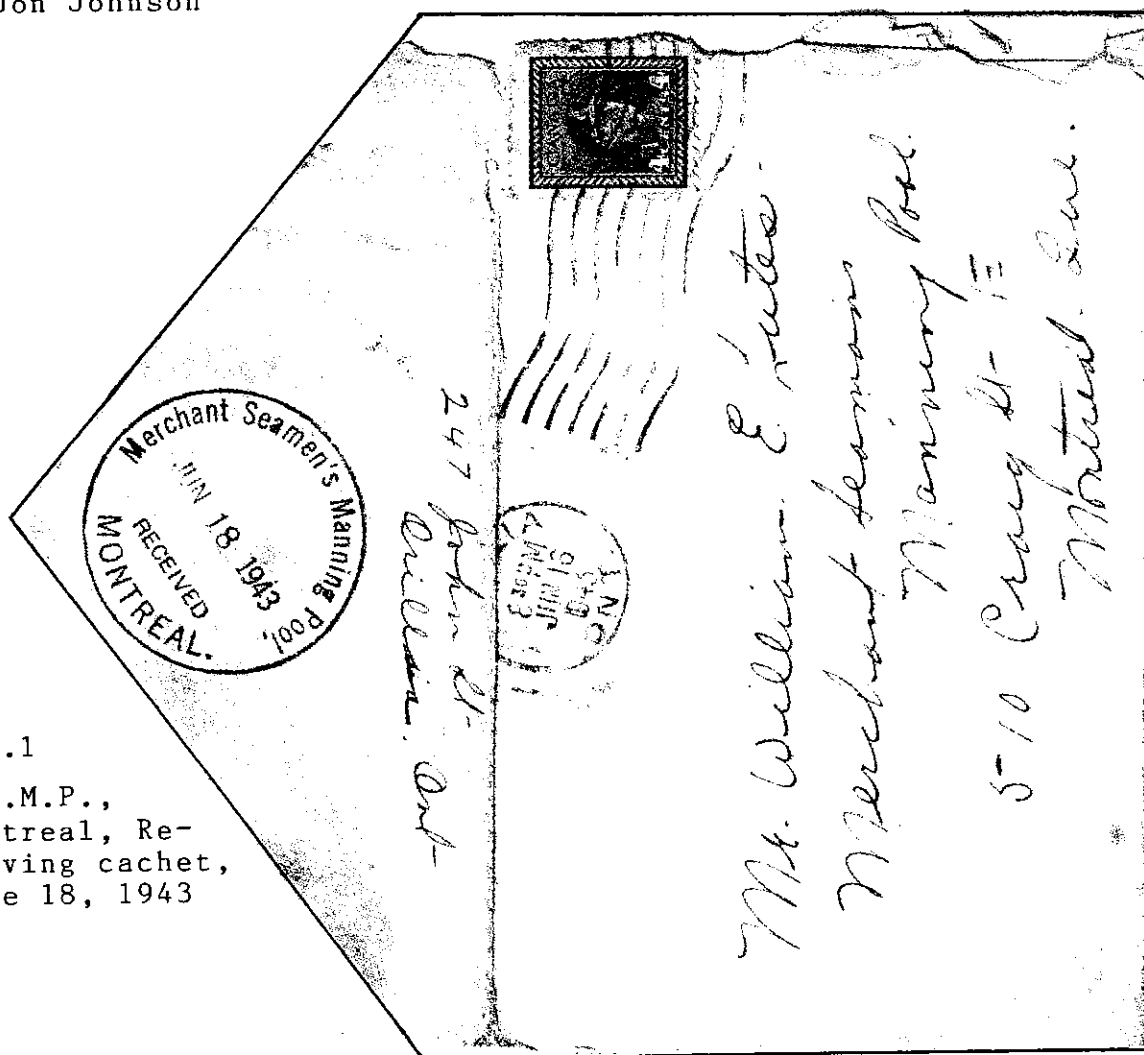 Jon Johnson
CANADA
Merchant Seamen's Manning Pool,
JUN 18 1943
RECEIVED
MONTREAL.
247 John St-
Orillia. Ont
JUN 16
ONT.
Mr. William E.
Merchant Seamans
Manning Pool.
510 Craig St- E
Montreal. Que.
.1
.M.P.,
treal, Re-
ving cachet,
e 18, 1943